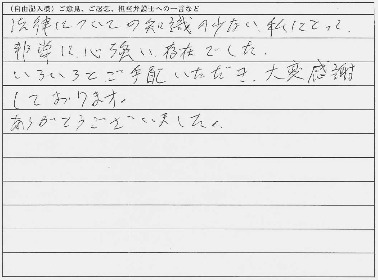 (自由記入欄)ご意見、ご感想、担当弁護士への一言など
法律についての知識の少ない私にとって、
非常に心強い存在でした。
いろいろとご手配いただき、大変感謝
しております。
ありがとうございました。